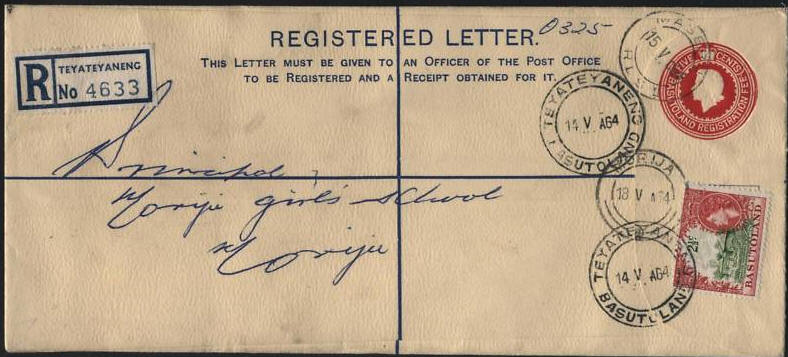 REGISTERED LETTER.
0325
THIS LETTER MUST BE GIVEN TO AN OFFICER OF THE POST OFFICE
TO BE REGISTERED AND A RECEIPT OBTAINED FOR IT.
R
TEYATEYANENG
No 4633
MASE
15 V
FIVE CENTS
BASUTOLAND REGISTRATION FEE
TEYATEYANENG
14 V A64
BASUTOLAND
Principal,
Morija girl's school
Morija
MORIJA
18 V A64
TEYATEYANENG
14 V A64
BASUTOLAND
2½c
BASUTOLAND